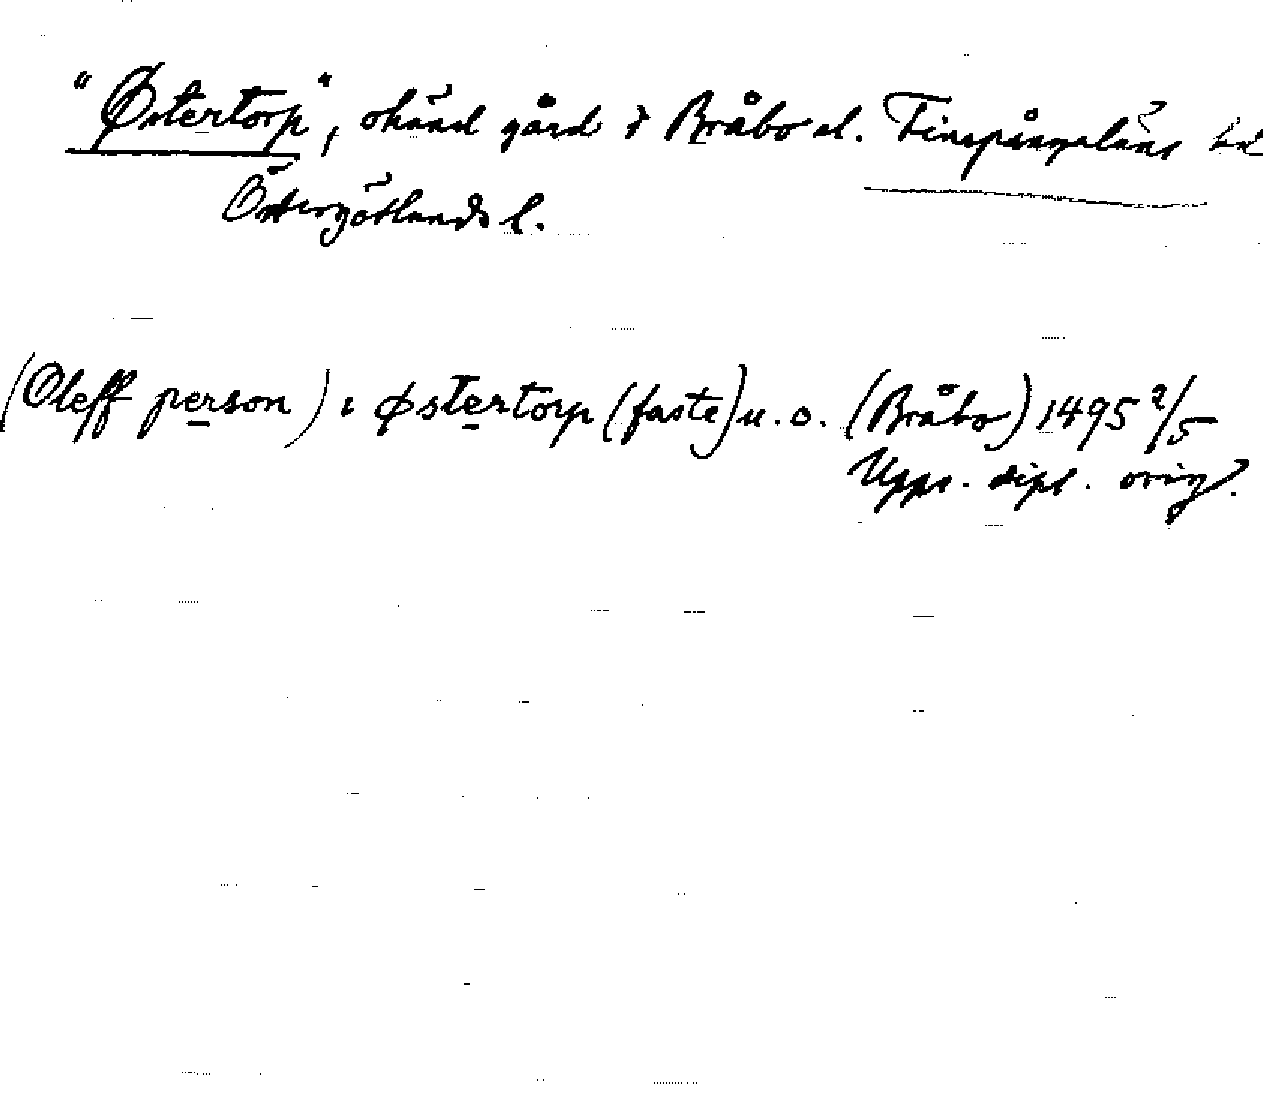 "Østertorp", okänd gård i Bråbo el. Finspångaläns hd
Östergötlands l.
(Oleff person) i østertorp (faste) u. o. (Bråbo) 1495 9/5
Upps. dipl. orig.